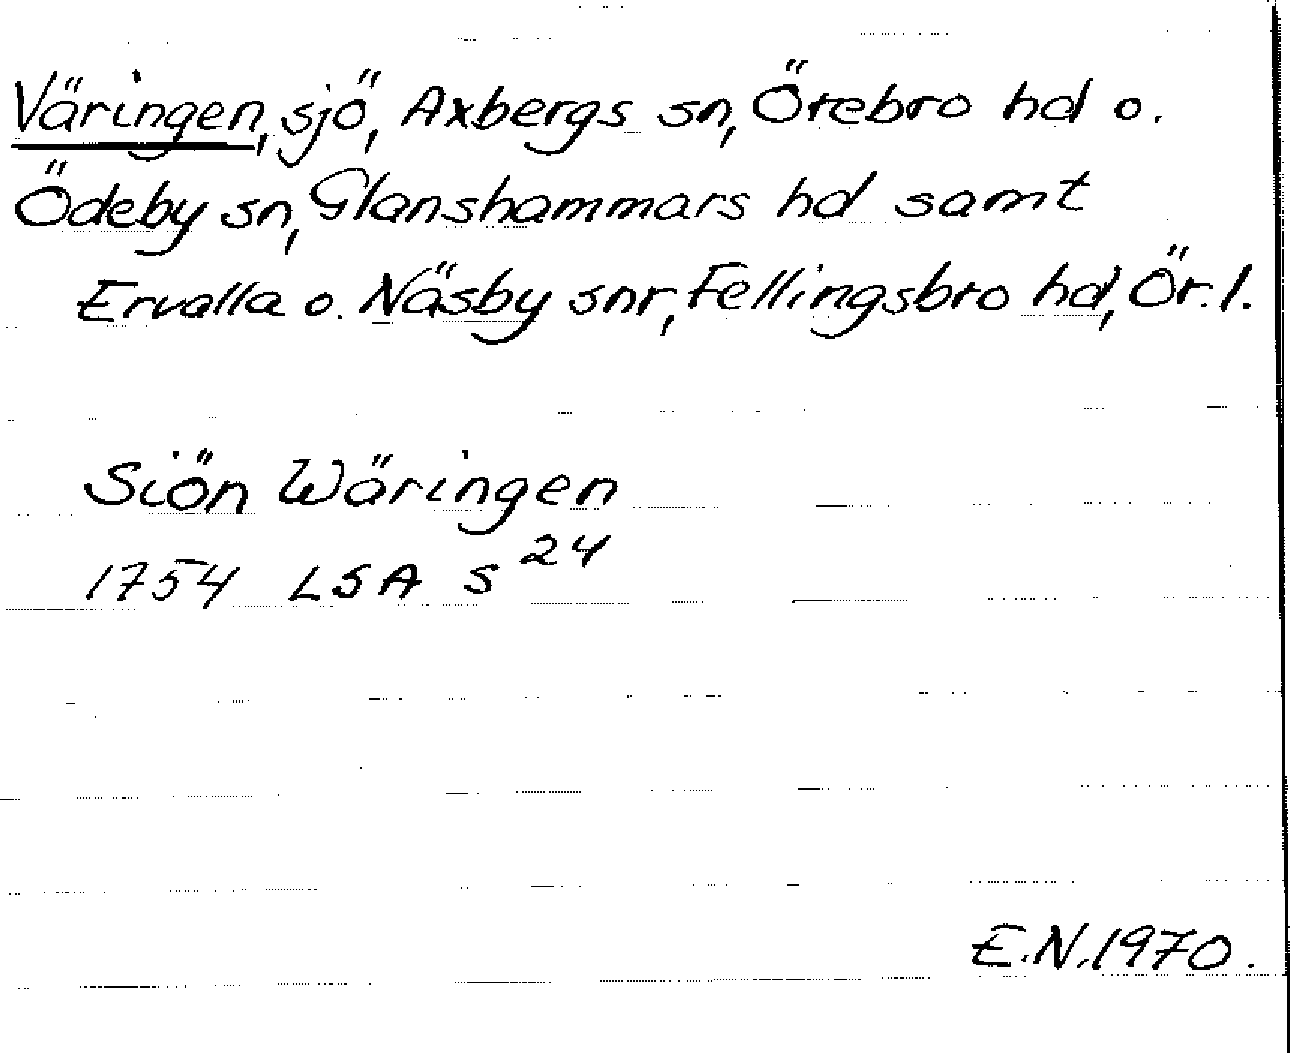 Väringen, sjö, Axbergs sn, Örebro hd o.
Ödeby sn, Glanshammars hd samt
Ervalla o. Näsby snr, Fellingsbro hd, Ör. l.
Siön Wäringen
1754 LSA S 24
E.N. 1970.